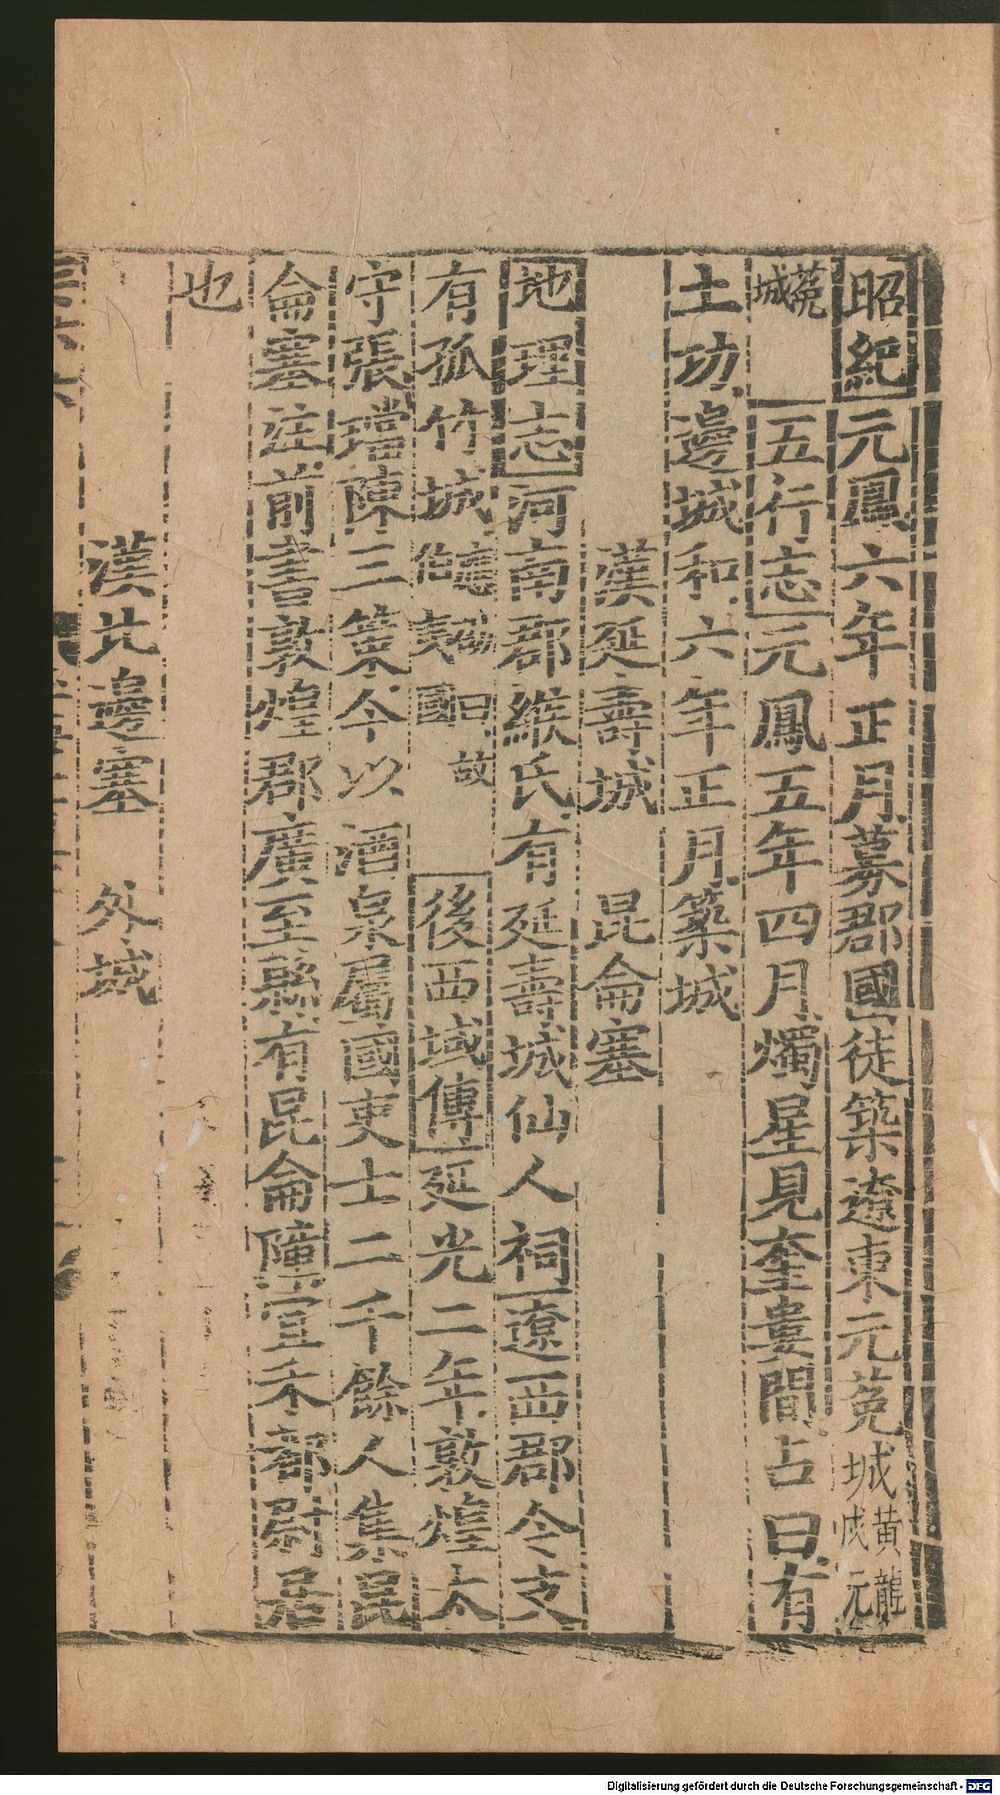 昭紀元鳳六年正月募郡國徒築遼東元菟城黃龍戍元
菟城五行志元鳳五年四月燭星見奎婁間占曰有
土功邊城和六年正月築城
漢延壽城 昆侖塞
地理志河南郡緱氏有延壽城仙人祠遼西郡令支
有孤竹城應劭曰故伯夷國 後西域傳延光二年敦煌太
守張璫陳三策今以酒泉屬國吏士二千餘人集昆
侖塞注前書敦煌郡廣至縣有昆侖障宜禾都尉居
也
漢北邊塞 外城
Digitalisierung gefördert durch die Deutsche Forschungsgemeinschaft - DFG